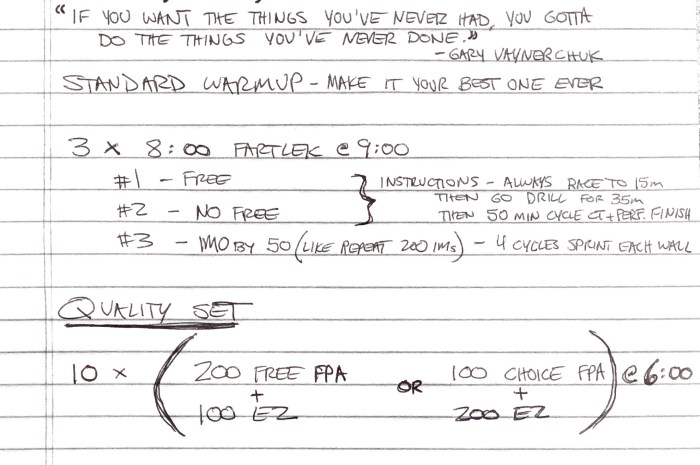 “IF YOU WANT THE THINGS YOU'VE NEVER HAD, YOU GOTTA
DO THE THINGS YOU'VE NEVER DONE.”
- GARY VAYNERCHUK
STANDARD WARMUP - MAKE IT YOUR BEST ONE EVER
3 x 8:00 FARTLEK @ 9:00
#1 - FREE
#2 - NO FREE
} INSTRUCTIONS - ALWAYS RACE TO 15m
THEN GO DRILL FOR 35m
THEN 50 MIN CYCLE CT + PERF. FINISH
#3 - IMO BY 50 (LIKE REPEAT 200 IMs) - 4 CYCLES SPRINT EACH WALL
QUALITY SET
10 x ( 200 FREE FPA + 100 EZ OR 100 CHOICE FPA + 200 EZ ) @ 6:00